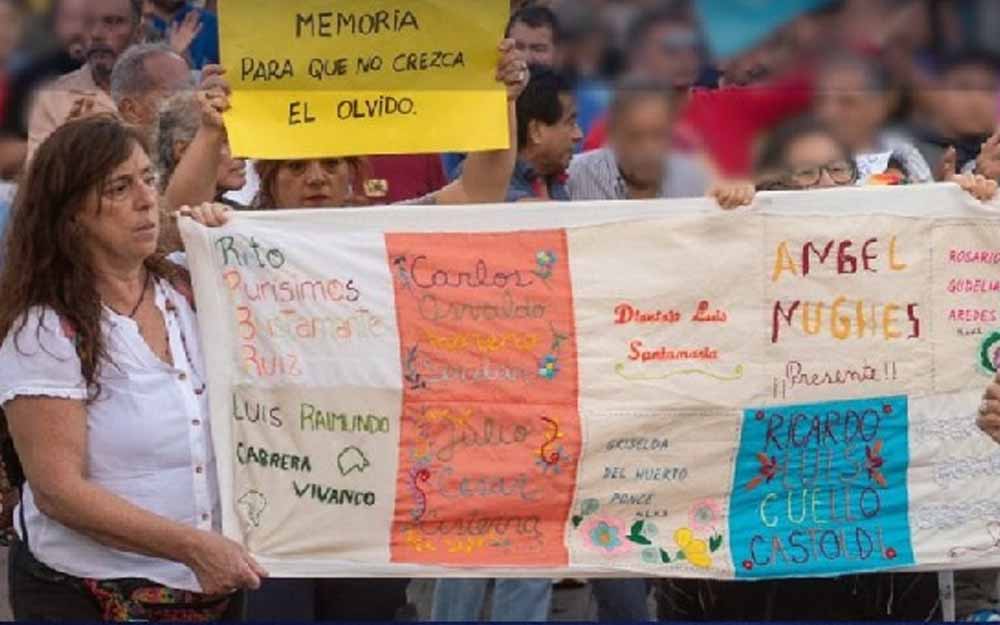 MEMORIA
PARA QUE NO CREZCA
EL OLVIDO.
Rito
Purisimos
Bustamante
Ruiz
LUIS RAIMUNDO
CABRERA
VIVANCO
Carlos
Osvaldo
Julio
Cesar
Cisterna
Luis
Santamaria
GRISELDA
DEL HUERTO
PONCE
ANGEL
MUGHES
¡¡Presente!!
RICARDO
LUIS
CUELLO
CASTOLDI
ROSARIO
GUDELIA
AREDES